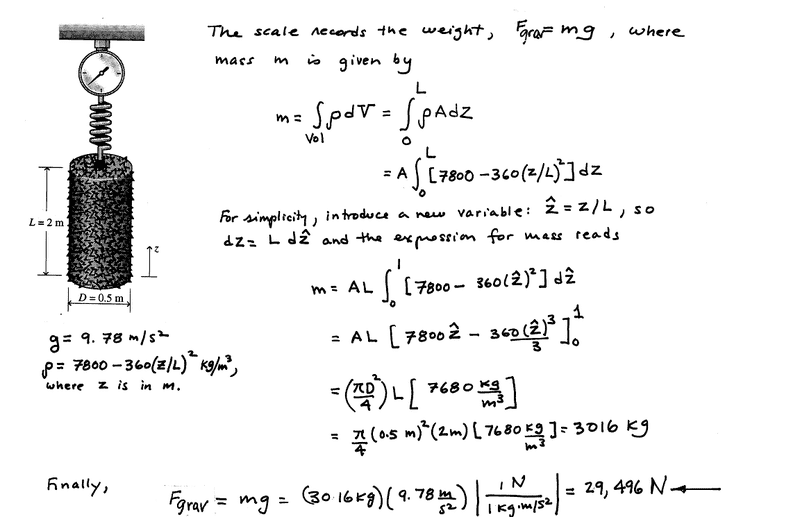 The scale records the weight, F_grav = mg , where
mass m is given by
m = ∫_Vol ρdV = ∫_0^L ρAdz
= A ∫_0^L [7800 - 360(z/L)^2] dz
For simplicity, introduce a new variable: ẑ = z/L , so
dz = L dẑ and the expression for mass reads
m = AL ∫_0^1 [7800 - 360(ẑ)^2] dẑ
= AL [7800 ẑ - 360(ẑ)^3/3]_0^1
= (πD^2/4) L [7680 kg/m^3]
= π/4 (0.5 m)^2 (2m) [7680 kg/m^3] = 3016 kg
L = 2 m
z
D = 0.5 m
g = 9.78 m/s^2
ρ = 7800 - 360(z/L)^2 kg/m^3,
where z is in m.
Finally,
F_grav = mg = (3016 kg)(9.78 m/s^2) | 1 N / 1 kg·m/s^2 | = 29,496 N ←